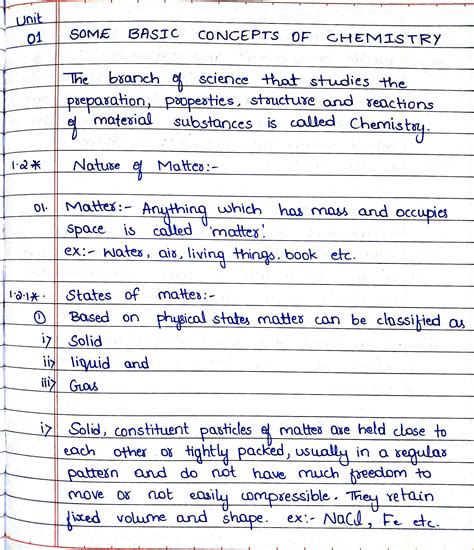 Unit
01 SOME BASIC CONCEPTS OF CHEMISTRY
The branch of science that studies the
preparation, properties, structure and reactions
of material substances is called Chemistry.
1.2* Nature of Matter:-
01. Matter:- Anything which has mass and occupies
space is called 'matter'.
ex:- Water, air, living things, book etc.
1.2.1*. States of matter:-
① Based on physical states matter can be classified as
i> Solid
ii> liquid and
iii> Gas
i> Solid, constituent particles of matter are held close to
each other or tightly packed, usually in a regular
pattern and do not have much freedom to
move or not easily compressible. They retain
fixed volume and shape. ex:- NaCl, Fe etc.